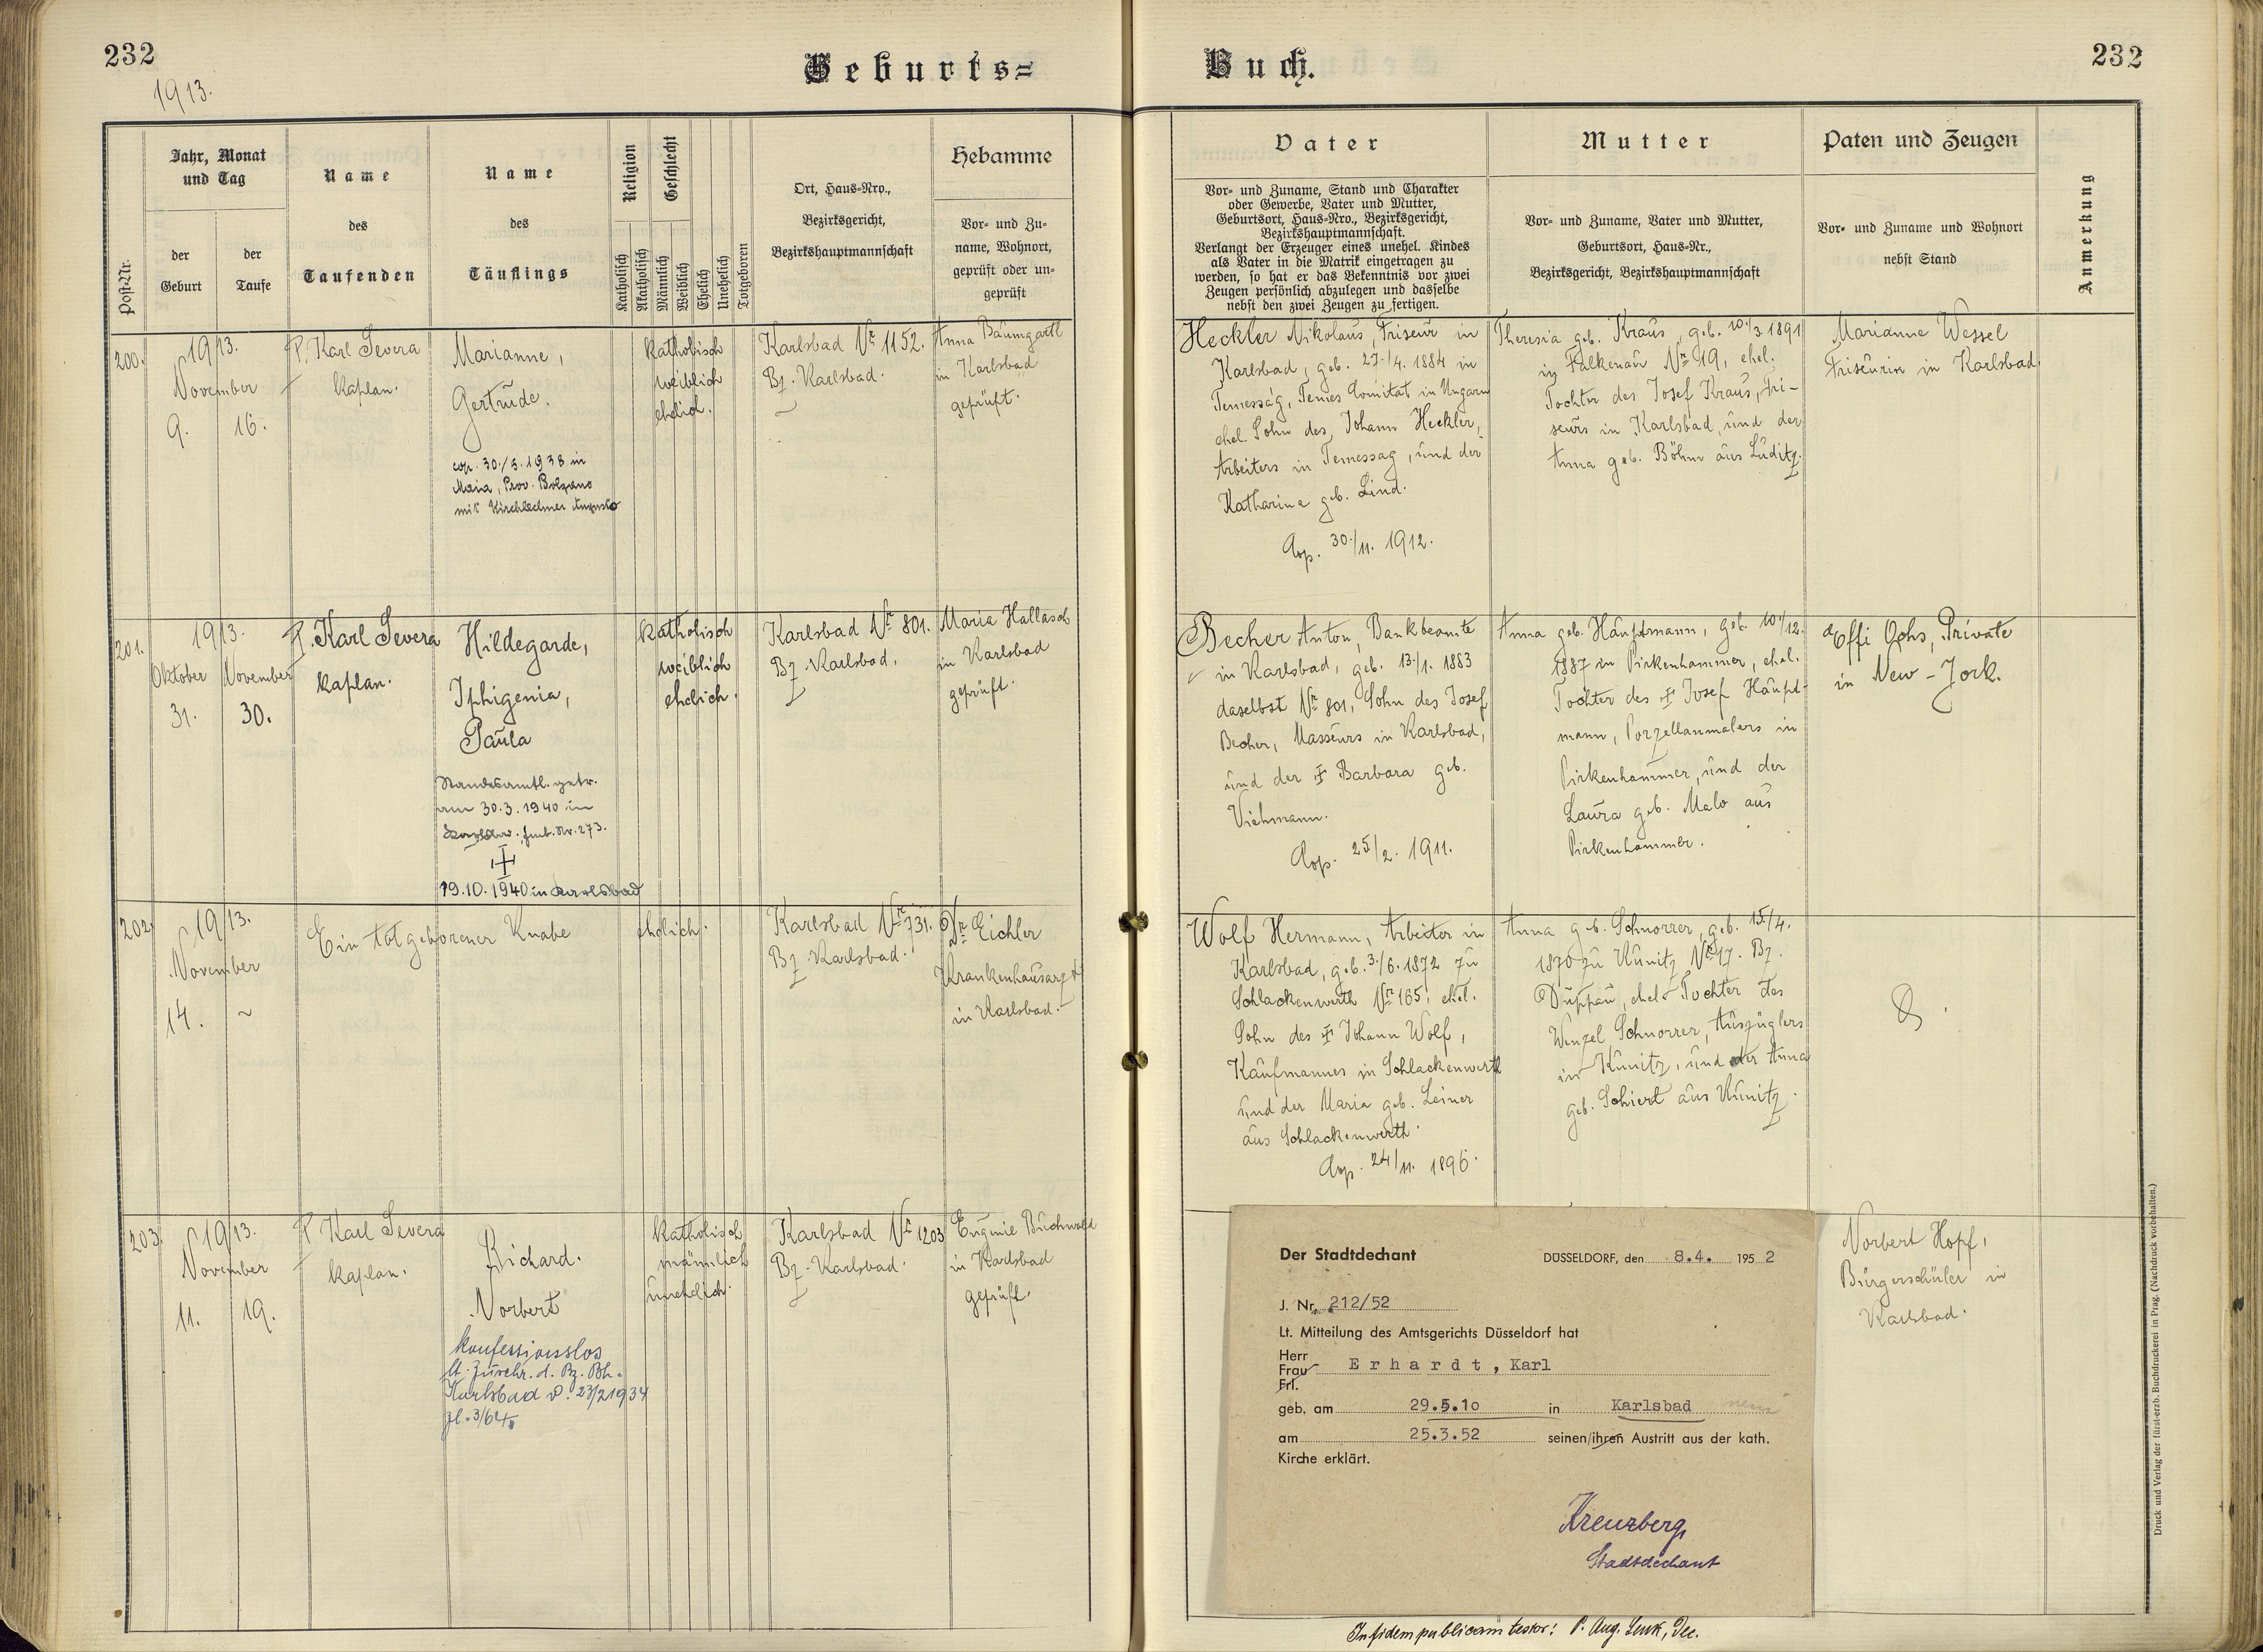 232
1913.
Geburts=
Buch.
232
Post-Nr.
Jahr, Monat
und Tag
der
Geburt
der
Taufe
Name
des
Taufenden
Name
des
Täuflings
Religion
Katholisch
Akatholisch
Geschlecht
Männlich
Weiblich
Ehelich
Unehelich
Totgeboren
Ort, Haus-Nro.,
Bezirksgericht,
Bezirkshauptmannschaft
Hebamme
Vor- und Zu-
name, Wohnort,
geprüft oder un-
geprüft
Vater
Vor- und Zuname, Stand und Charakter
oder Gewerbe, Vater und Mutter,
Geburtsort, Haus-Nro., Bezirksgericht,
Bezirkshauptmannschaft.
Verlangt der Erzeuger eines unehel. Kindes
als Vater in die Matrik eingetragen zu
werden, so hat er das Bekenntnis vor zwei
Zeugen persönlich abzulegen und dasselbe
nebst den zwei Zeugen zu fertigen.
Mutter
Vor- und Zuname, Vater und Mutter,
Geburtsort, Haus-Nr.,
Bezirksgericht, Bezirkshauptmannschaft
Paten und Zeugen
Vor- und Zuname und Wohnort
nebst Stand
Anmerkung
200.
1913.
November
9. 16.
P. Karl Severa
Kaplan.
Marianne,
Gertrude.
cop. 30./5. 1938 in
Maia, Prov. Bolzano
mit Kirchlechner Augusto
Katholisch
weiblich
ehelich.
Karlsbad Nr 1152.
Bz. Karlsbad.
Anna Baumgartl
in Karlsbad
geprüft.
Heckler Nikolaus, Friseur in
Karlsbad, geb. 27./4. 1884 in
Temesság, Temes Comitat in Ungarn
ehel. Sohn des Johann Heckler,
Arbeiters in Temessag, und der
Katharina geb. Lind.
Cop. 30./11. 1912.
Theresia geb. Kraus, geb. 10./3. 1891
in Falkenau Nr 19, ehel.
Tochter des Josef Kraus, Fri-
seurs in Karlsbad, und der
Anna geb. Böhm aus Luditz.
Marianne Wessel
Friseurin in Karlsbad
201.
1913.
Oktober November
31. 30.
P. Karl Severa
Kaplan.
Hildegarde,
Iphigenia,
Paula
Standesamtl. getr.
am 30.3.1940 in
Karlsbad, Fmb. Nr. 273.
19.10.1940 in Karlsbad
Katholisch
weiblich
ehelich.
Karlsbad Nr 801.
Bz. Karlsbad.
Maria Hallasch
in Karlsbad
geprüft.
Becher Anton, Bankbeamte
in Karlsbad, geb. 13./1. 1883
daselbst Nr 801, Sohn des Josef
Becher, Masseurs in Karlsbad,
und der ‡ Barbara geb.
Viehmann.
Cop. 25./2. 1911.
Anna geb. Hauptmann, geb. 10./12.
1887 in Pirkenhammer, ehel.
Tochter des ‡ Josef Haupt-
mann, Porzellanmalers in
Pirkenhammer, und der
Laura geb. Malo aus
Pirkenhammer.
Effi Ochs, Private
in New-York.
202.
1913.
November
14. ~
Ein totgeborener Knabe
ehelich.
Karlsbad Nr 731.
Bz. Karlsbad.
Dr. Eichler
Krankenhausarzt
in Karlsbad.
Wolf Hermann, Arbeiter in
Karlsbad, geb. 3./6. 1872 zu
Schlackenwerth Nr 165, ehel.
Sohn des ‡ Johann Wolf,
Kaufmannes in Schlackenwerth
und der Maria geb. Leiner
aus Schlackenwerth.
Cop. 24/11. 1896.
Anna geb. Schnorrer, geb. 15/4.
1870 zu Kunitz Nr 17. Bz.
Duppau, ehel. Tochter des
Wenzel Schnorrer, Auszüglers
in Kunitz, und der Anna
geb. Schiert aus Kunitz.
203.
1913.
November
11. 19.
P. Karl Severa
Kaplan.
Richard.
Norbert
konfessionslos
lt. Zuschr. d. Bz. Bh.
Karlsbad v. 23/2 1934
Zl. 3/64.
Katholisch
männlich
unehelich.
Karlsbad Nr 1203
Bz. Karlsbad.
Eugenie Buchwald
in Karlsbad
geprüft.
Norbert Hopf,
Bürgerschüler in
Karlsbad.
Der Stadtdechant
DÜSSELDORF, den 8.4. 1952
J. Nr. 212/52
Lt. Mitteilung des Amtsgerichts Düsseldorf hat
Herr
Frau
Frl.
Erhardt, Karl
geb. am 29.5.10 in Karlsbad
am 25.3.52 seinen/ihren Austritt aus der kath.
Kirche erklärt.
Kreuzberg
Stadtdechant
In fidem publicam testor: P. Aug. Lenk, Dec.
Druck und Verlag der fürst-erzb. Buchdruckerei in Prag. (Nachdruck vorbehalten.)